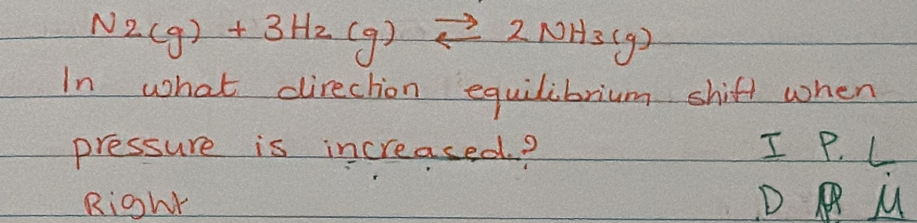 N2(g) + 3H2(g) ⇄ 2NH3(g)
In what direction equilibrium shift when
pressure is increased.?
I P. L
Right
D M